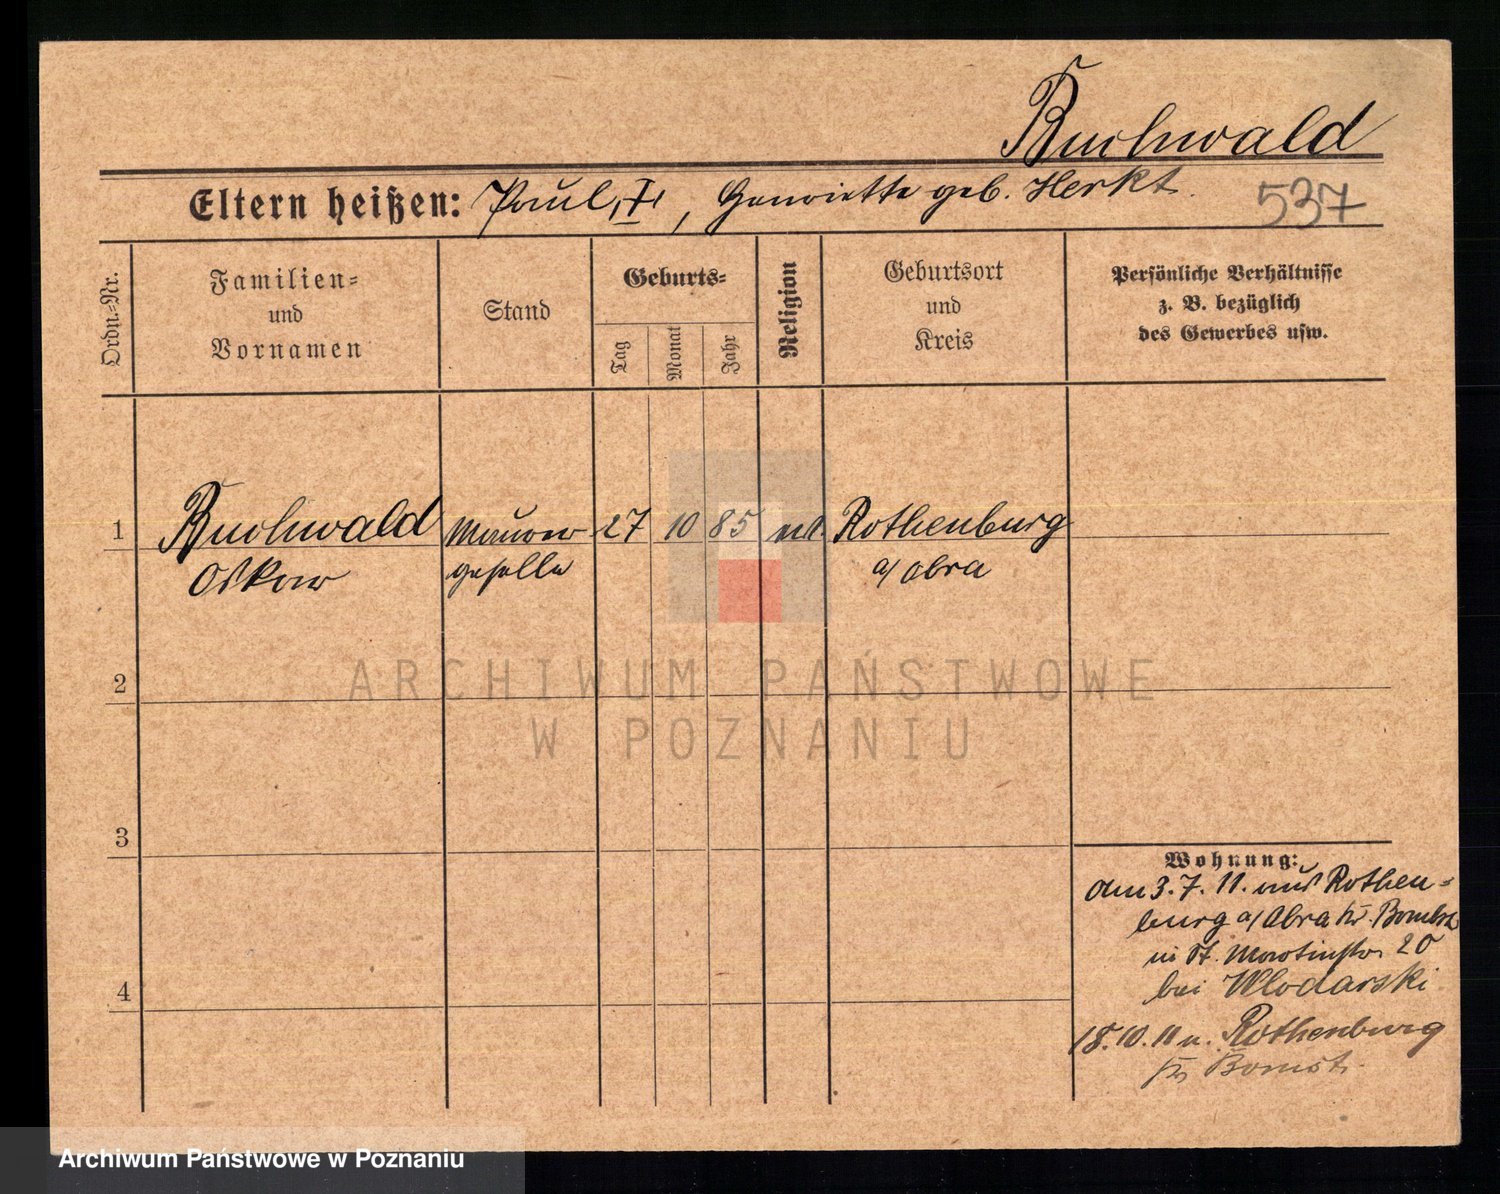 Buchwald
Eltern heißen: Paul, I, Henriette geb. Herkt.
537
Ordn.-Nr.
Familien-
und
Vornamen
Stand
Geburts-
Tag
Monat
Jahr
Religion
Geburtsort
und
Kreis
Persönliche Verhältnisse
z. B. bezüglich
des Gewerbes usw.
1 Buchwald Maurer 27 10 85 Rothenburg
Oskar geselle a/Obra
2
3
4
Wohnung:
am 3.7.11. aus Rothen-
burg a/Obra Kr. Bomst
in St. Martinstr. 20
bei Wlodarski
18.10.11 n. Rothenburg
Kr Bomst.
ARCHIWUM PAŃSTWOWE
W POZNANIU
Archiwum Państwowe w Poznaniu